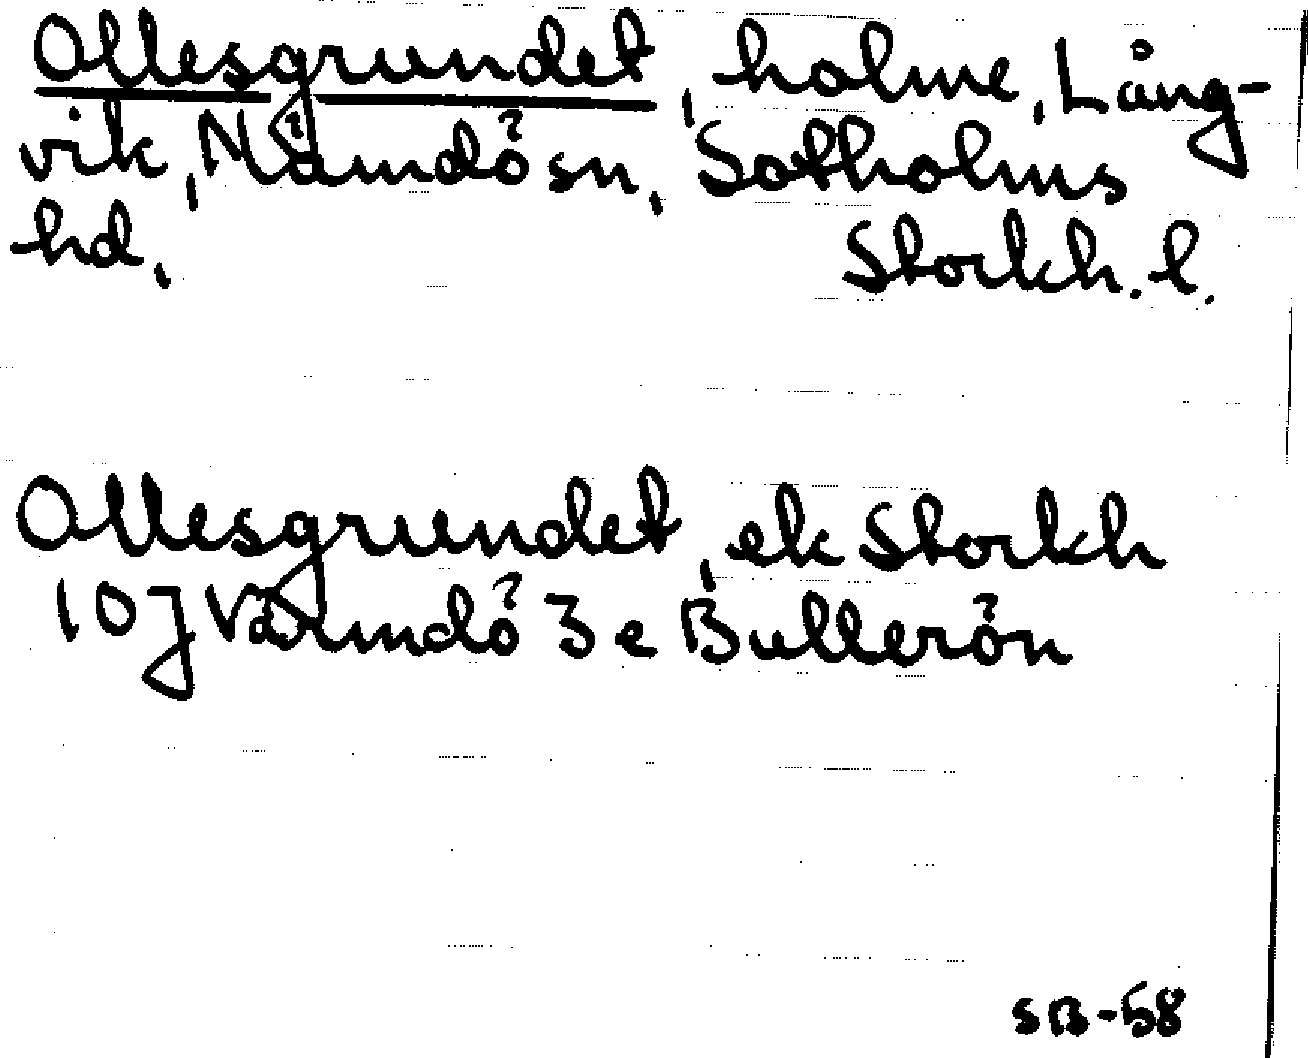 Ollesgrundet, holme, Lång-
vik, Nämdö sn, Sotholms
hd, Stockh. l.
Ollesgrundet, ek Stockh
10J Värmdö 3e Bullerön
SB-58